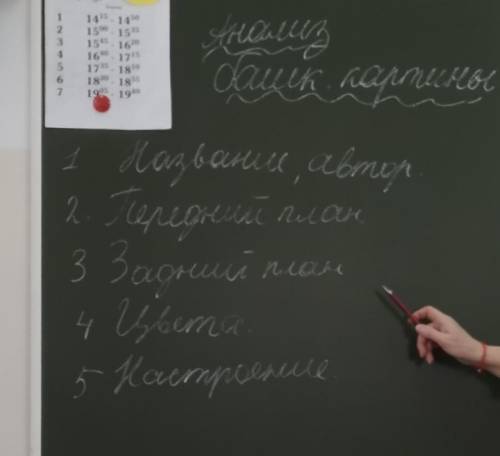 1 14 15 - 14 50
2 15 00 - 15 35
3 15 45 - 16 20
4 16 40 - 17 15
5 17 25 - 18 00
7 19 05 - 19 40
Анализ
башк. картины
1 Название, автор.
2. Передний план
3 Задний план
4 Цвета.
5 Настроение.